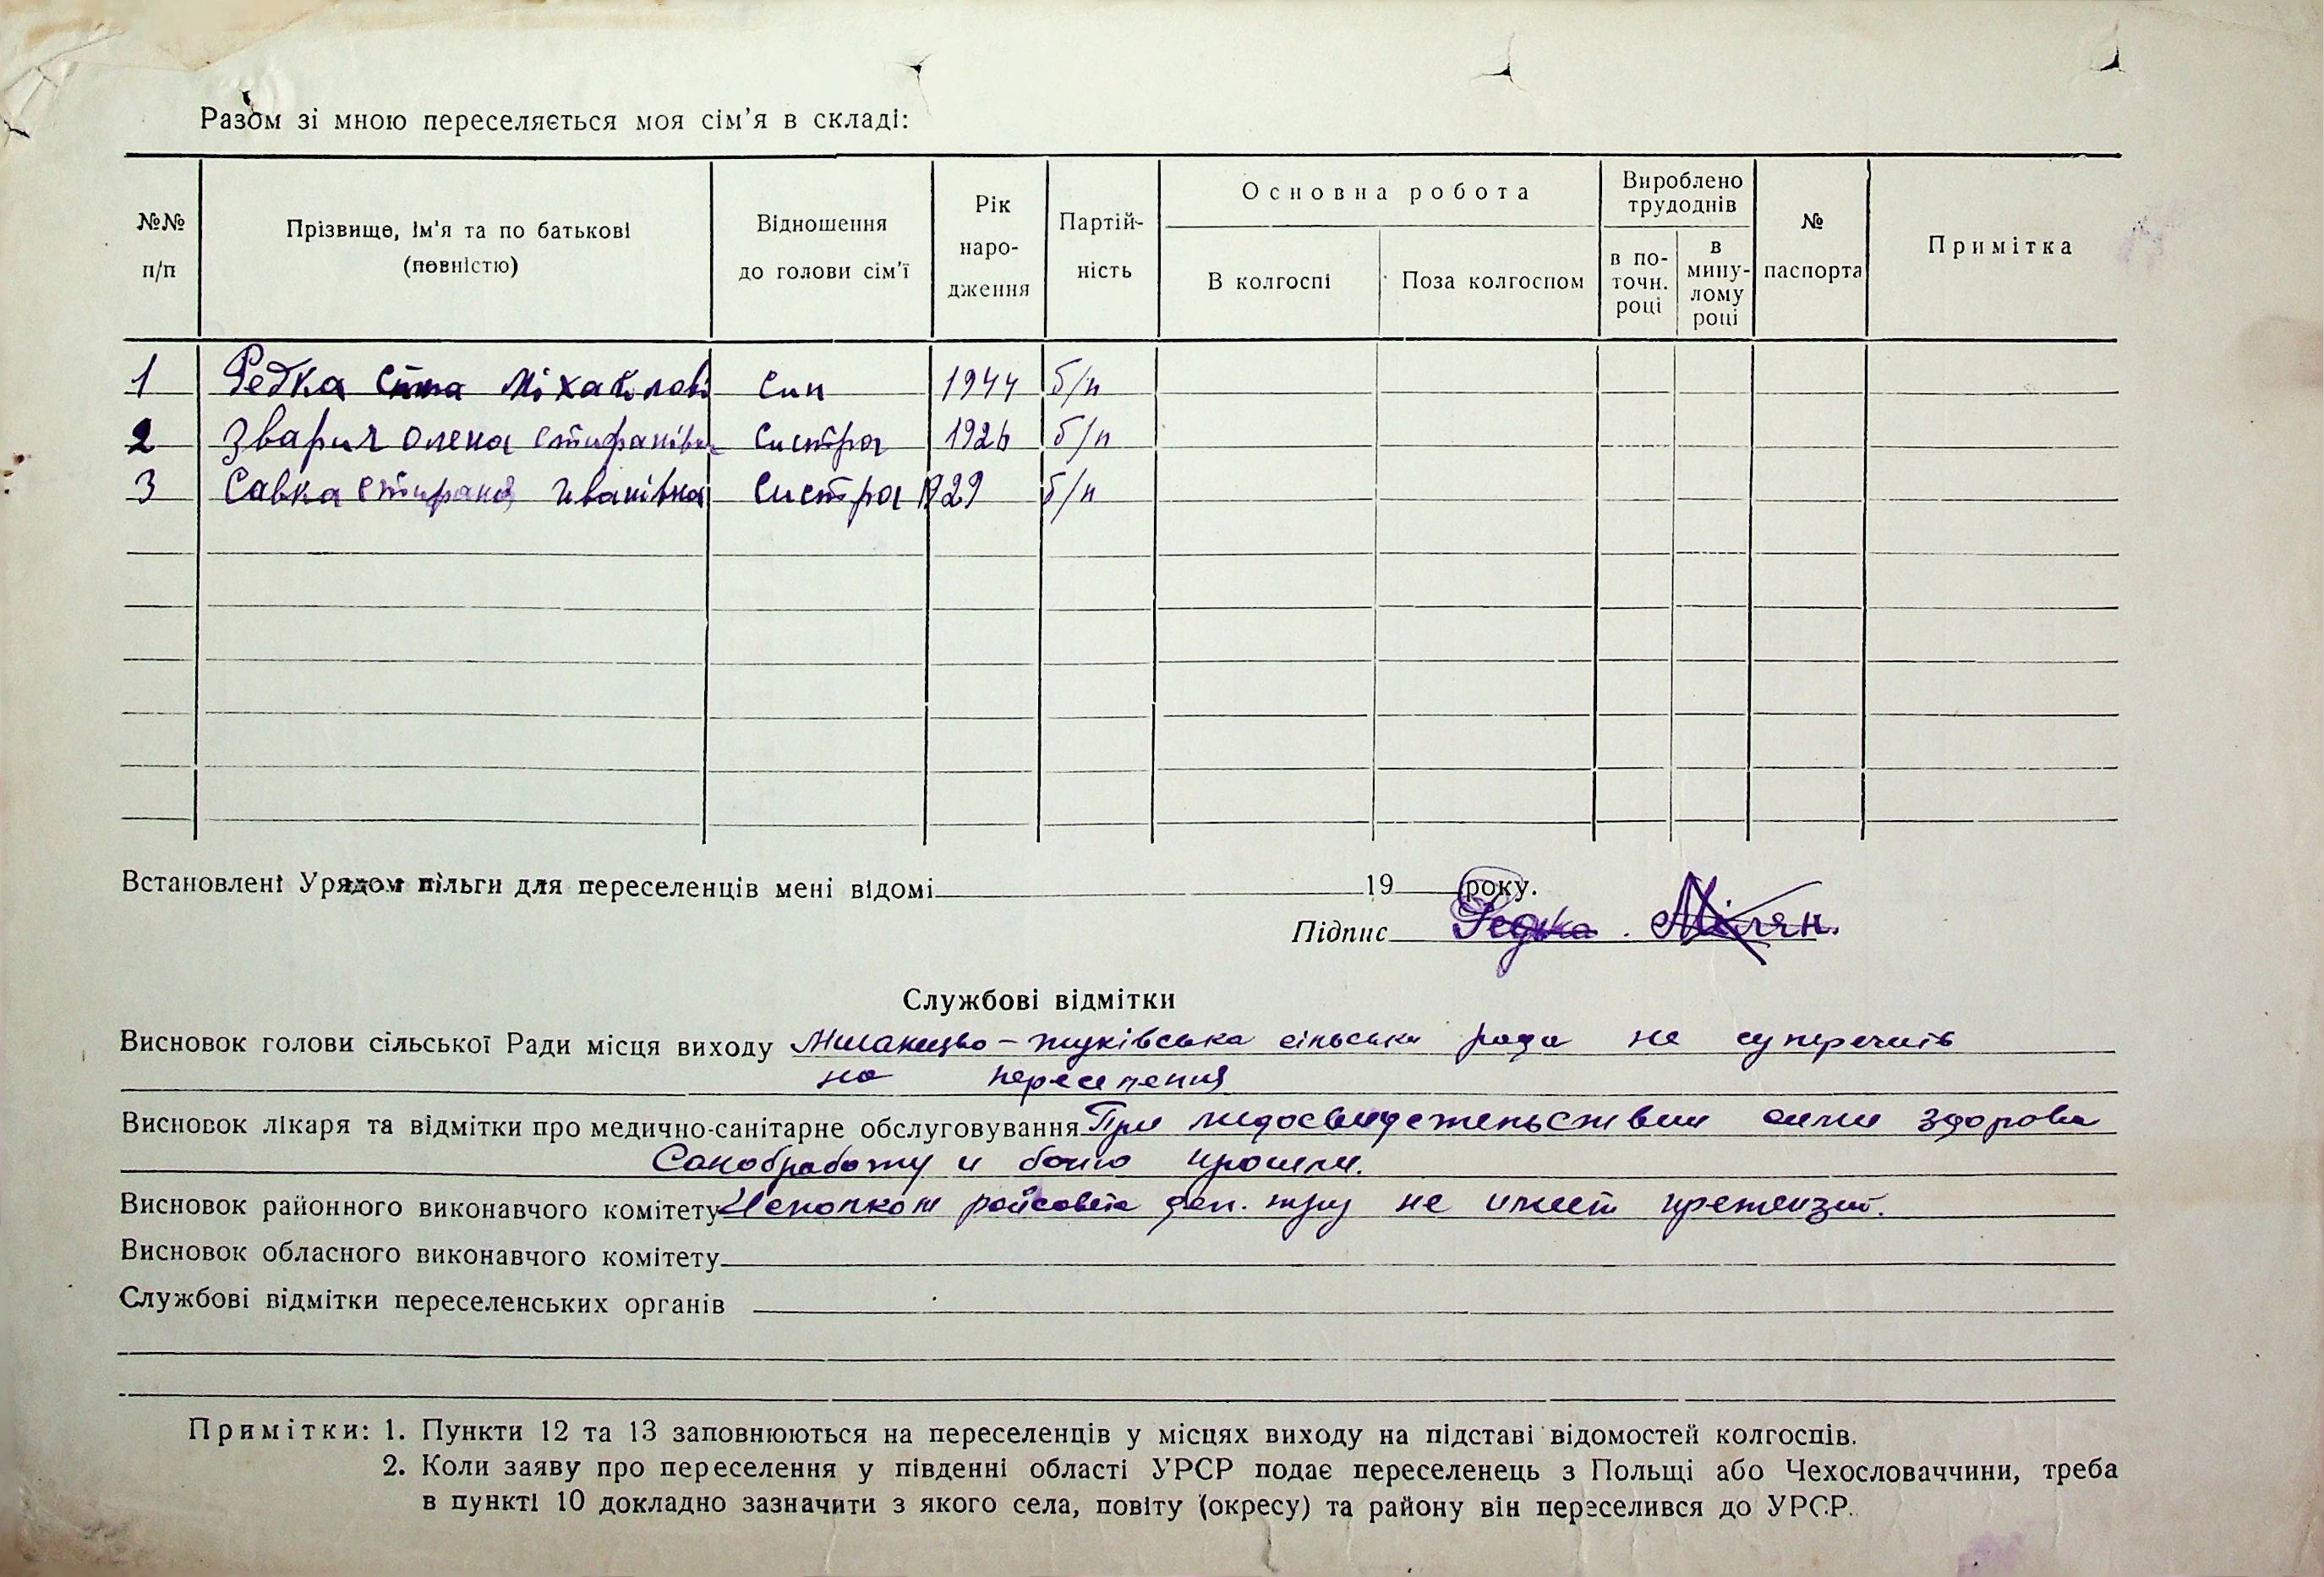 Разом зі мною переселяється моя сім'я в складі:
№№ п/п Прізвище, ім'я та по батькові (повністю) Відношення до голови сім'ї Рік народження Партійність Основна робота В колгоспі Поза колгоспом Вироблено трудоднів в поточн. році в минулому році № паспорта Примітка
1 Редка Міхайлові Син 1944 б/п
2 Зварич Олена Стифанівна Систра 1926 б/п
3 Савка Іванівна Систра 1929 б/п
Встановлені Урядом пільги для переселенців мені відомі 19 року.
Підпис Редка.
Службові відмітки
Висновок голови сільської Ради місця виходу сільська рада не суперечить
на переселення
Висновок лікаря та відмітки про медично-санітарне обслуговування При здорова
Санобработку и баню прошли.
Висновок районного виконавчого комітету райсовета деп. труд не имеет претензий.
Висновок обласного виконавчого комітету
Службові відмітки переселенських органів
Примітки: 1. Пункти 12 та 13 заповнюються на переселенців у місцях виходу на підставі відомостей колгоспів.
2. Коли заяву про переселення у південні області УРСР подає переселенець з Польщі або Чехословаччини, треба
в пункті 10 докладно зазначити з якого села, повіту (окресу) та району він переселився до УРСР.